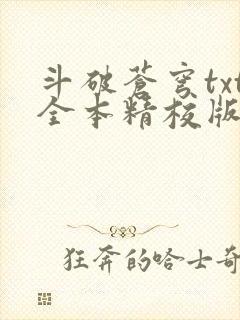 斗破蒼穹txt
全本精校版
狂奔的哈士奇